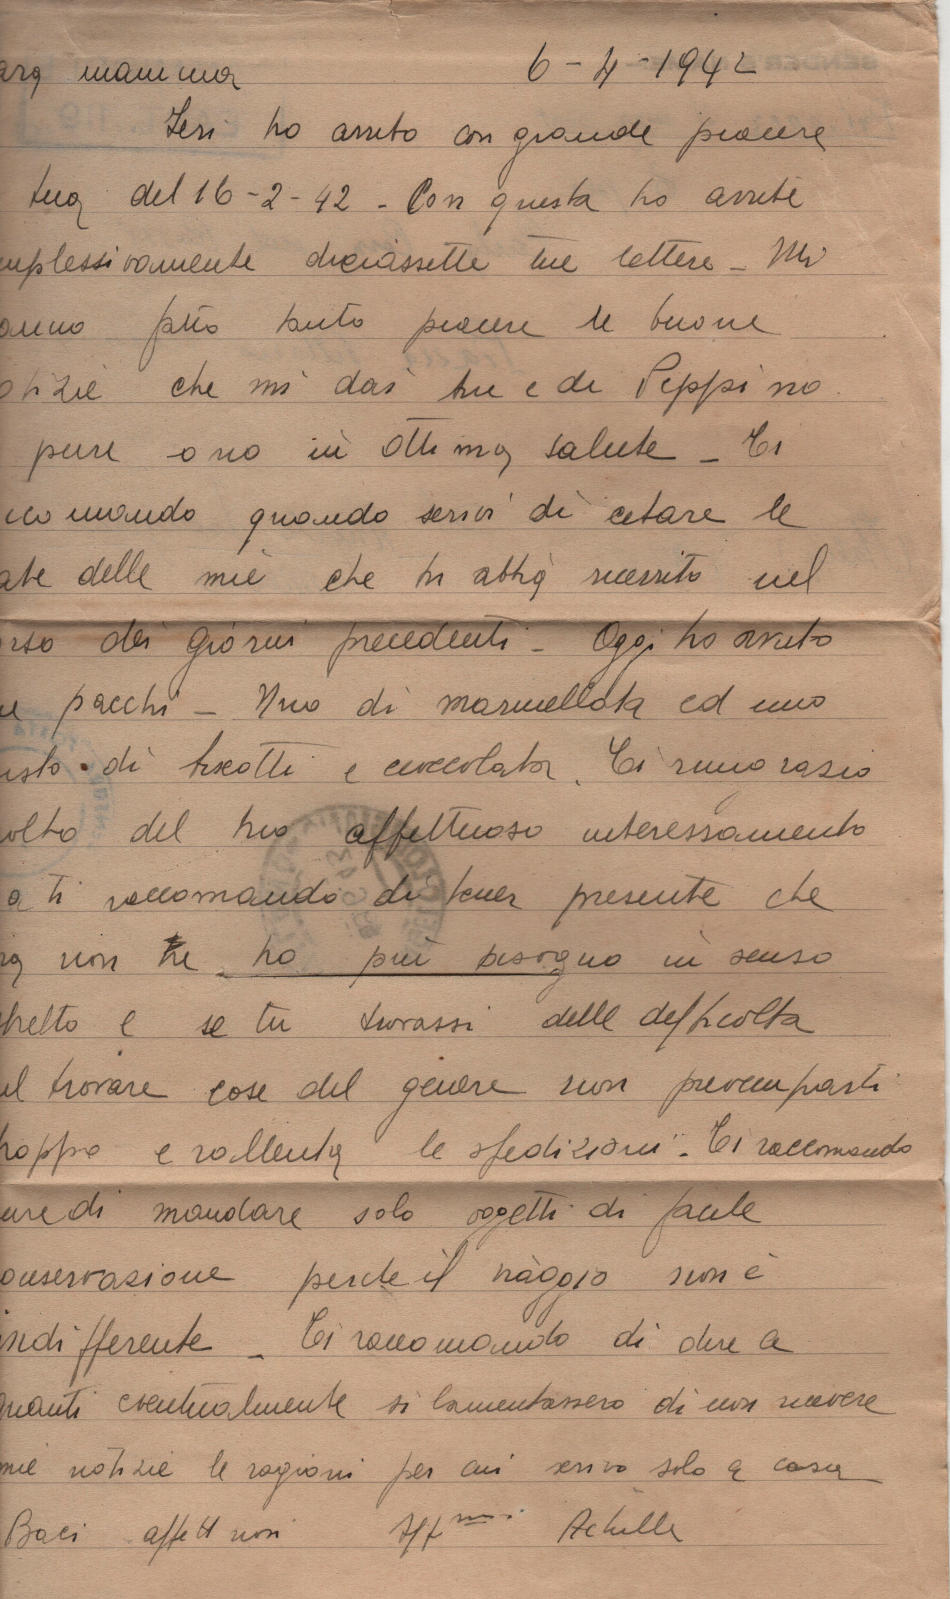 ara mamma 6-4-1942
Ieri ho avuto con grande piacere
tua del 16-2-42 - Con questa ho avute
mplessivamente diciassette tue lettere - Mi
anno fatto tanto piacere le buone
otizie che mi dai tue e di Peppino.
pure sono in ottima salute - Ti
ccomando quando scrivi di citare le
ate delle mie che tu abbia ricevuto nel
orso dei giorni precedenti - Oggi ho avuto
ue pacchi - Uno di marmellata ed uno
isto di biscotti e cioccolata. Ti ringrazio
olto del tuo affettuoso interessamento
a ti raccomando di tener presente che
ra non ne ho più bisogno in senso
stretto e se tu trovassi delle difficolta
el trovare cose del genere non preoccuparti
troppo e rallenta le spedizioni. Ti raccomando
ure di mandare solo oggetti di facile
onservazione perche il viaggio non è
indifferente - Ti raccomando di dire a
quanti eventualmente si lamentassero di non ricevere
mie notizie le ragioni per cui scrivo solo a casa
Baci affettuosi Aff.mo Achille